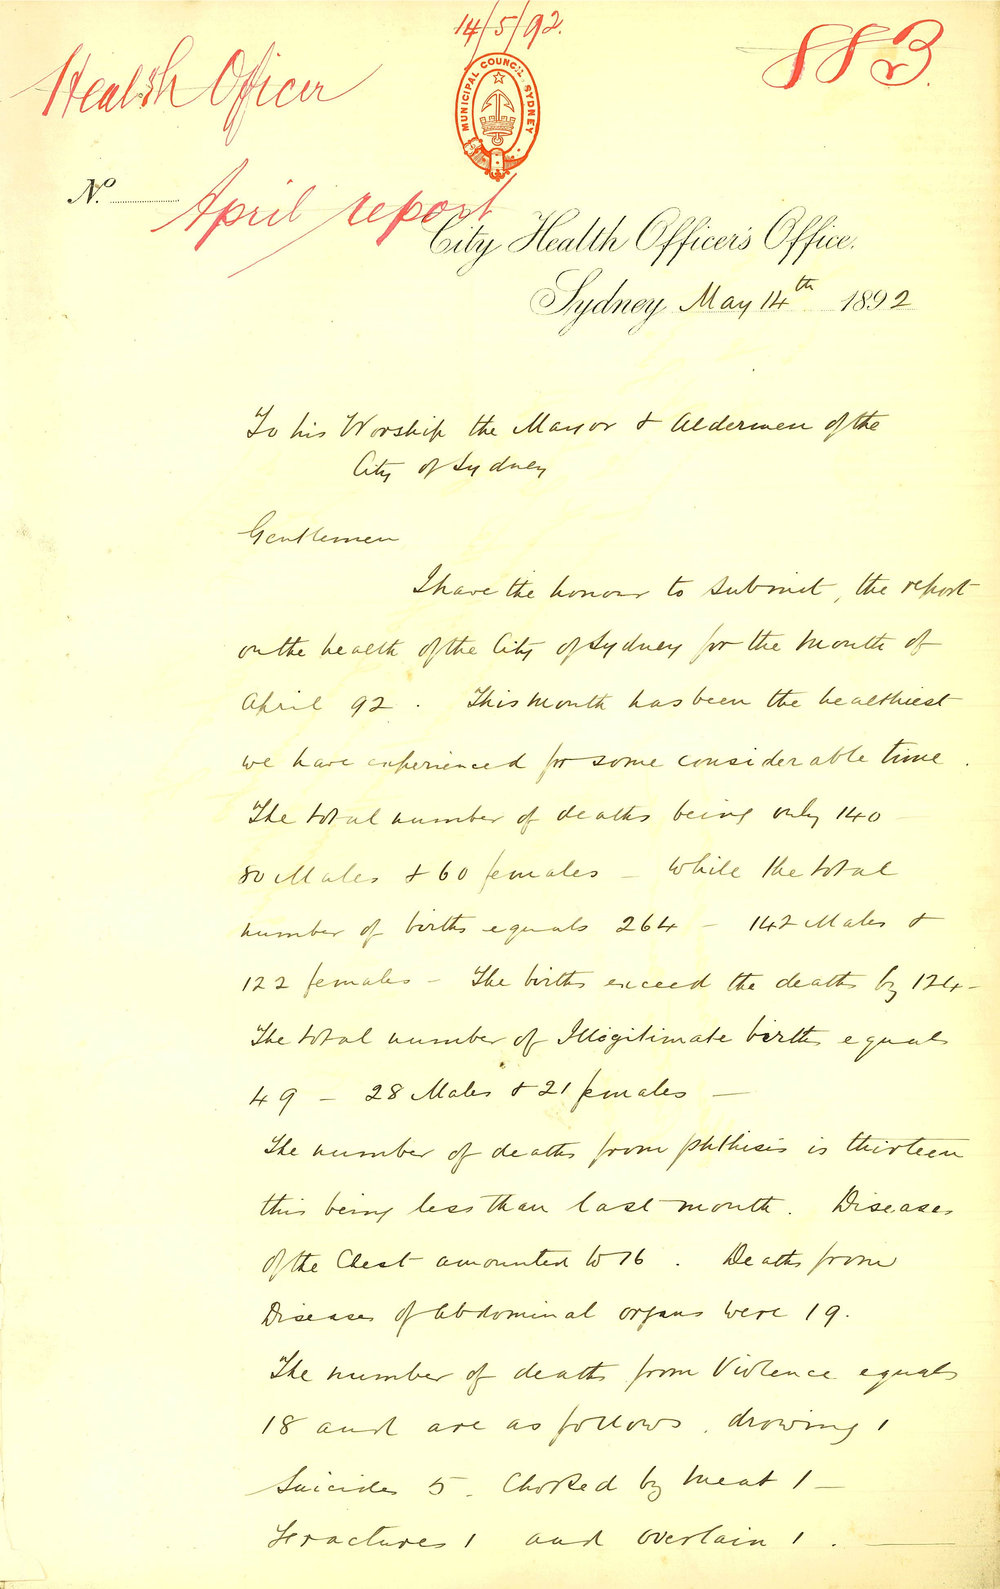 14/5/92.
Health Officer
883.
MUNICIPAL COUNCIL SYDNEY
No.
April report
City Health Officer's Office.
Sydney May 14th 1892
To his Worship the Mayor & Aldermen of the
City of Sydney
Gentlemen
I have the honour to submit, the report
on the health of the City of Sydney for the month of
April 92. This month has been the healthiest
we have experienced for some considerable time.
The total number of deaths being only 140
80 Males & 60 females – While the total
number of births equals 264 – 142 Males &
122 females – The births exceed the deaths by 124 –
The total number of Illegitimate births equals
49 – 28 Males & 21 females –
The number of deaths from phthisis is thirteen
this being less than last month. Diseases
of the Chest amounted to 16. Deaths from
Diseases of abdominal organs were 19.
The number of deaths from Violence equals
18 and are as follows. drowing 1
Suicides 5. Choked by meat 1 –
Fractures 1 and overlain 1.